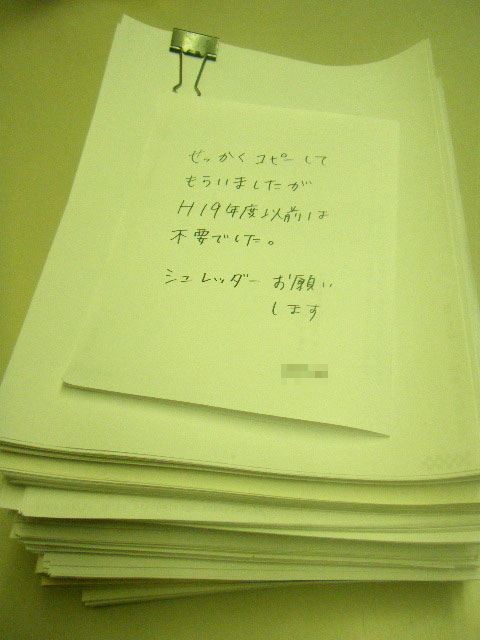 せっかくコピーして
もらいましたが
H19年度以前は
不要でした。
シュレッダーお願い
します